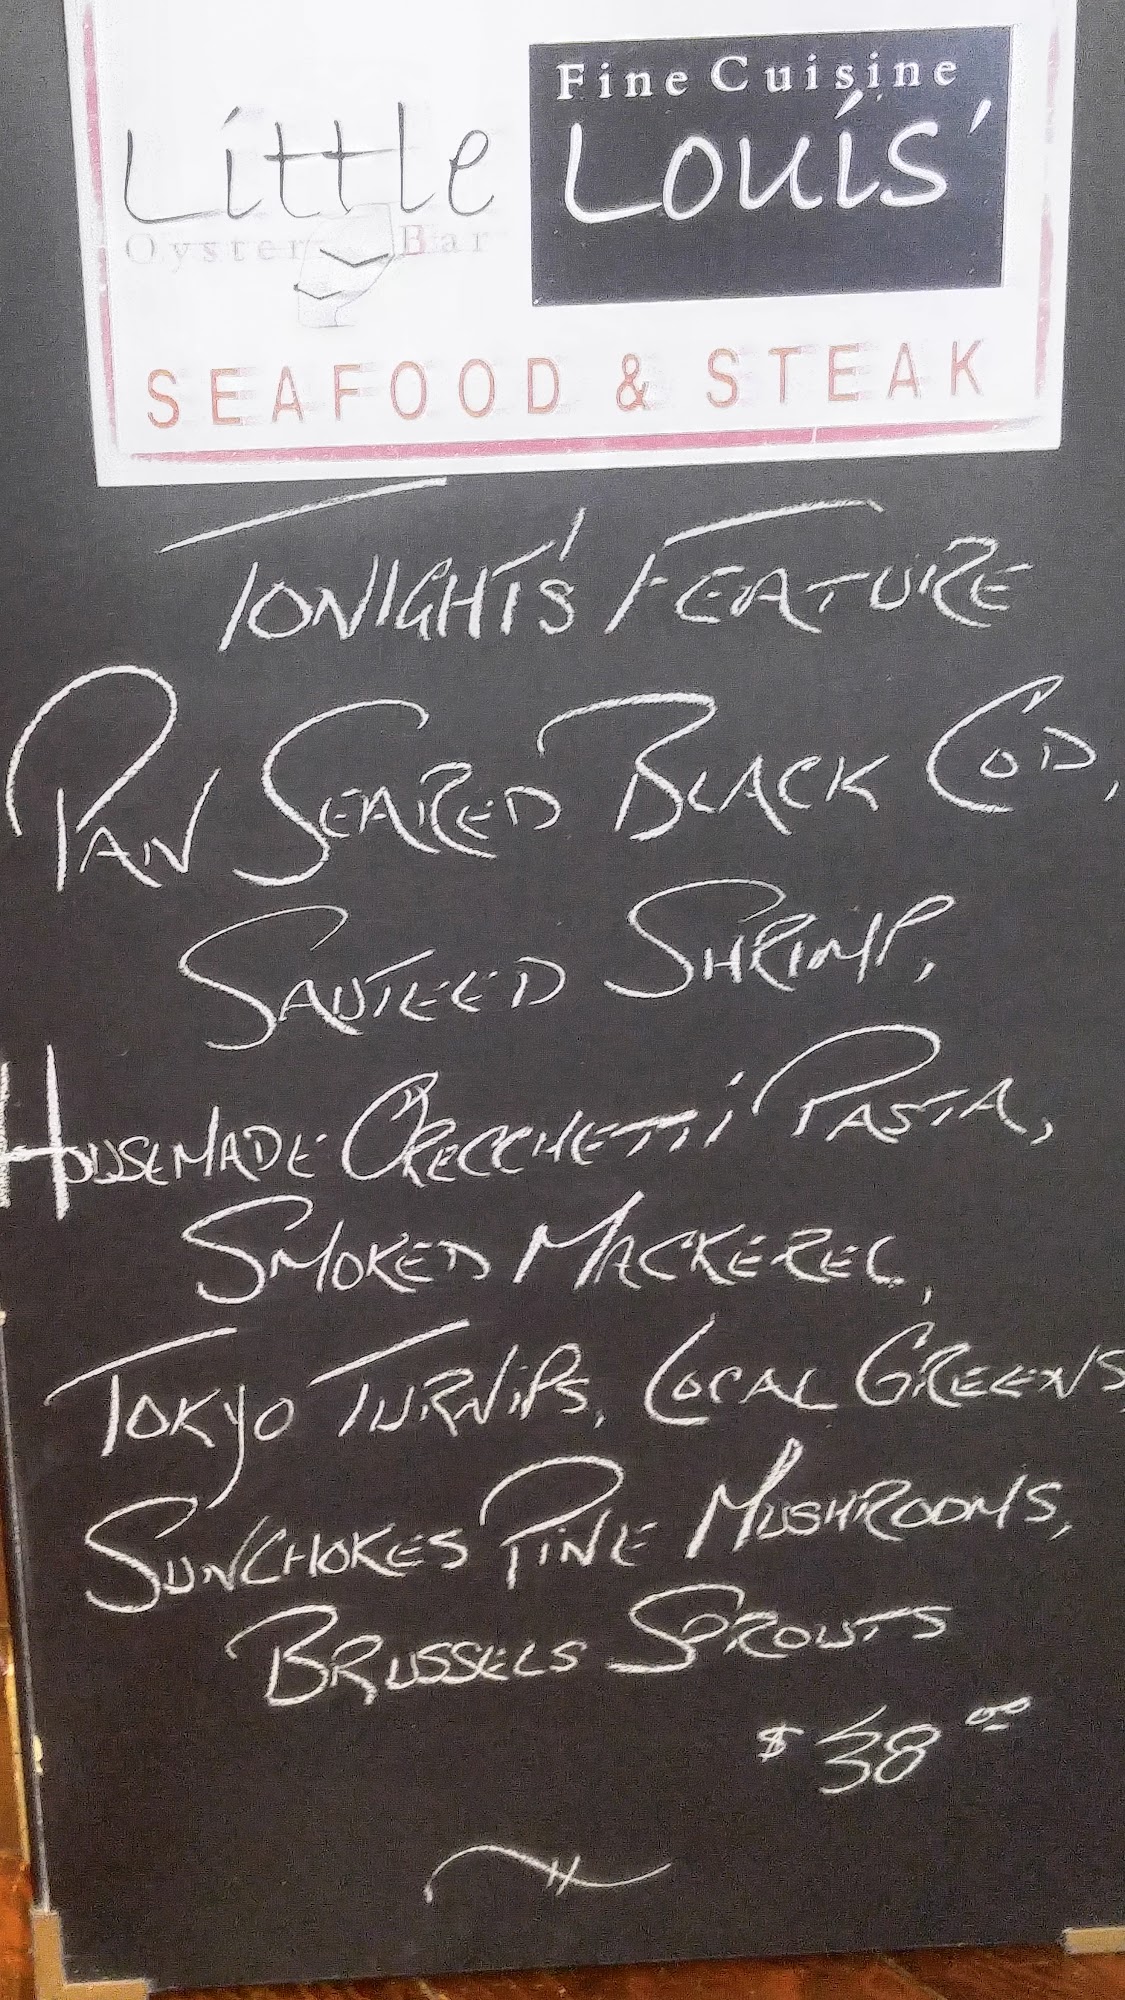 Fine Cuisine
Little Louis'
Oyster Bar
SEAFOOD & STEAK
TONIGHT'S FEATURE
PAN SEARED BLACK COD,
SAUTEED SHRIMP,
HOUSEMADE ORECCHETTI PASTA,
SMOKED MACKEREL,
TOKYO TURNIPS, LOCAL GREENS,
SUNCHOKES PINE MUSHROOMS,
BRUSSELS SPROUTS
$38.00